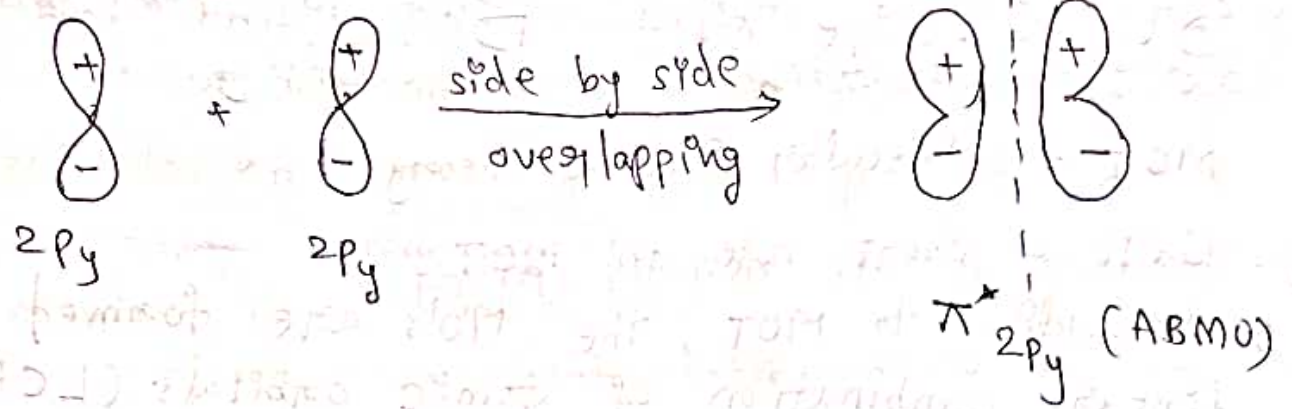 + + side by side + +
+
- - overlapping - -
2Py 2Py
π* 2Py (ABMO)